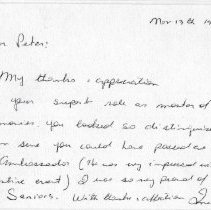 Nov 13th 19
Peter:
My thanks & appreciation
your superb role as mentor of
you looked so distinguished
sure you could have passed as
Ambassador (He was very impressed with
entire event) I was so very proud of
Seniors. With thanks & affection